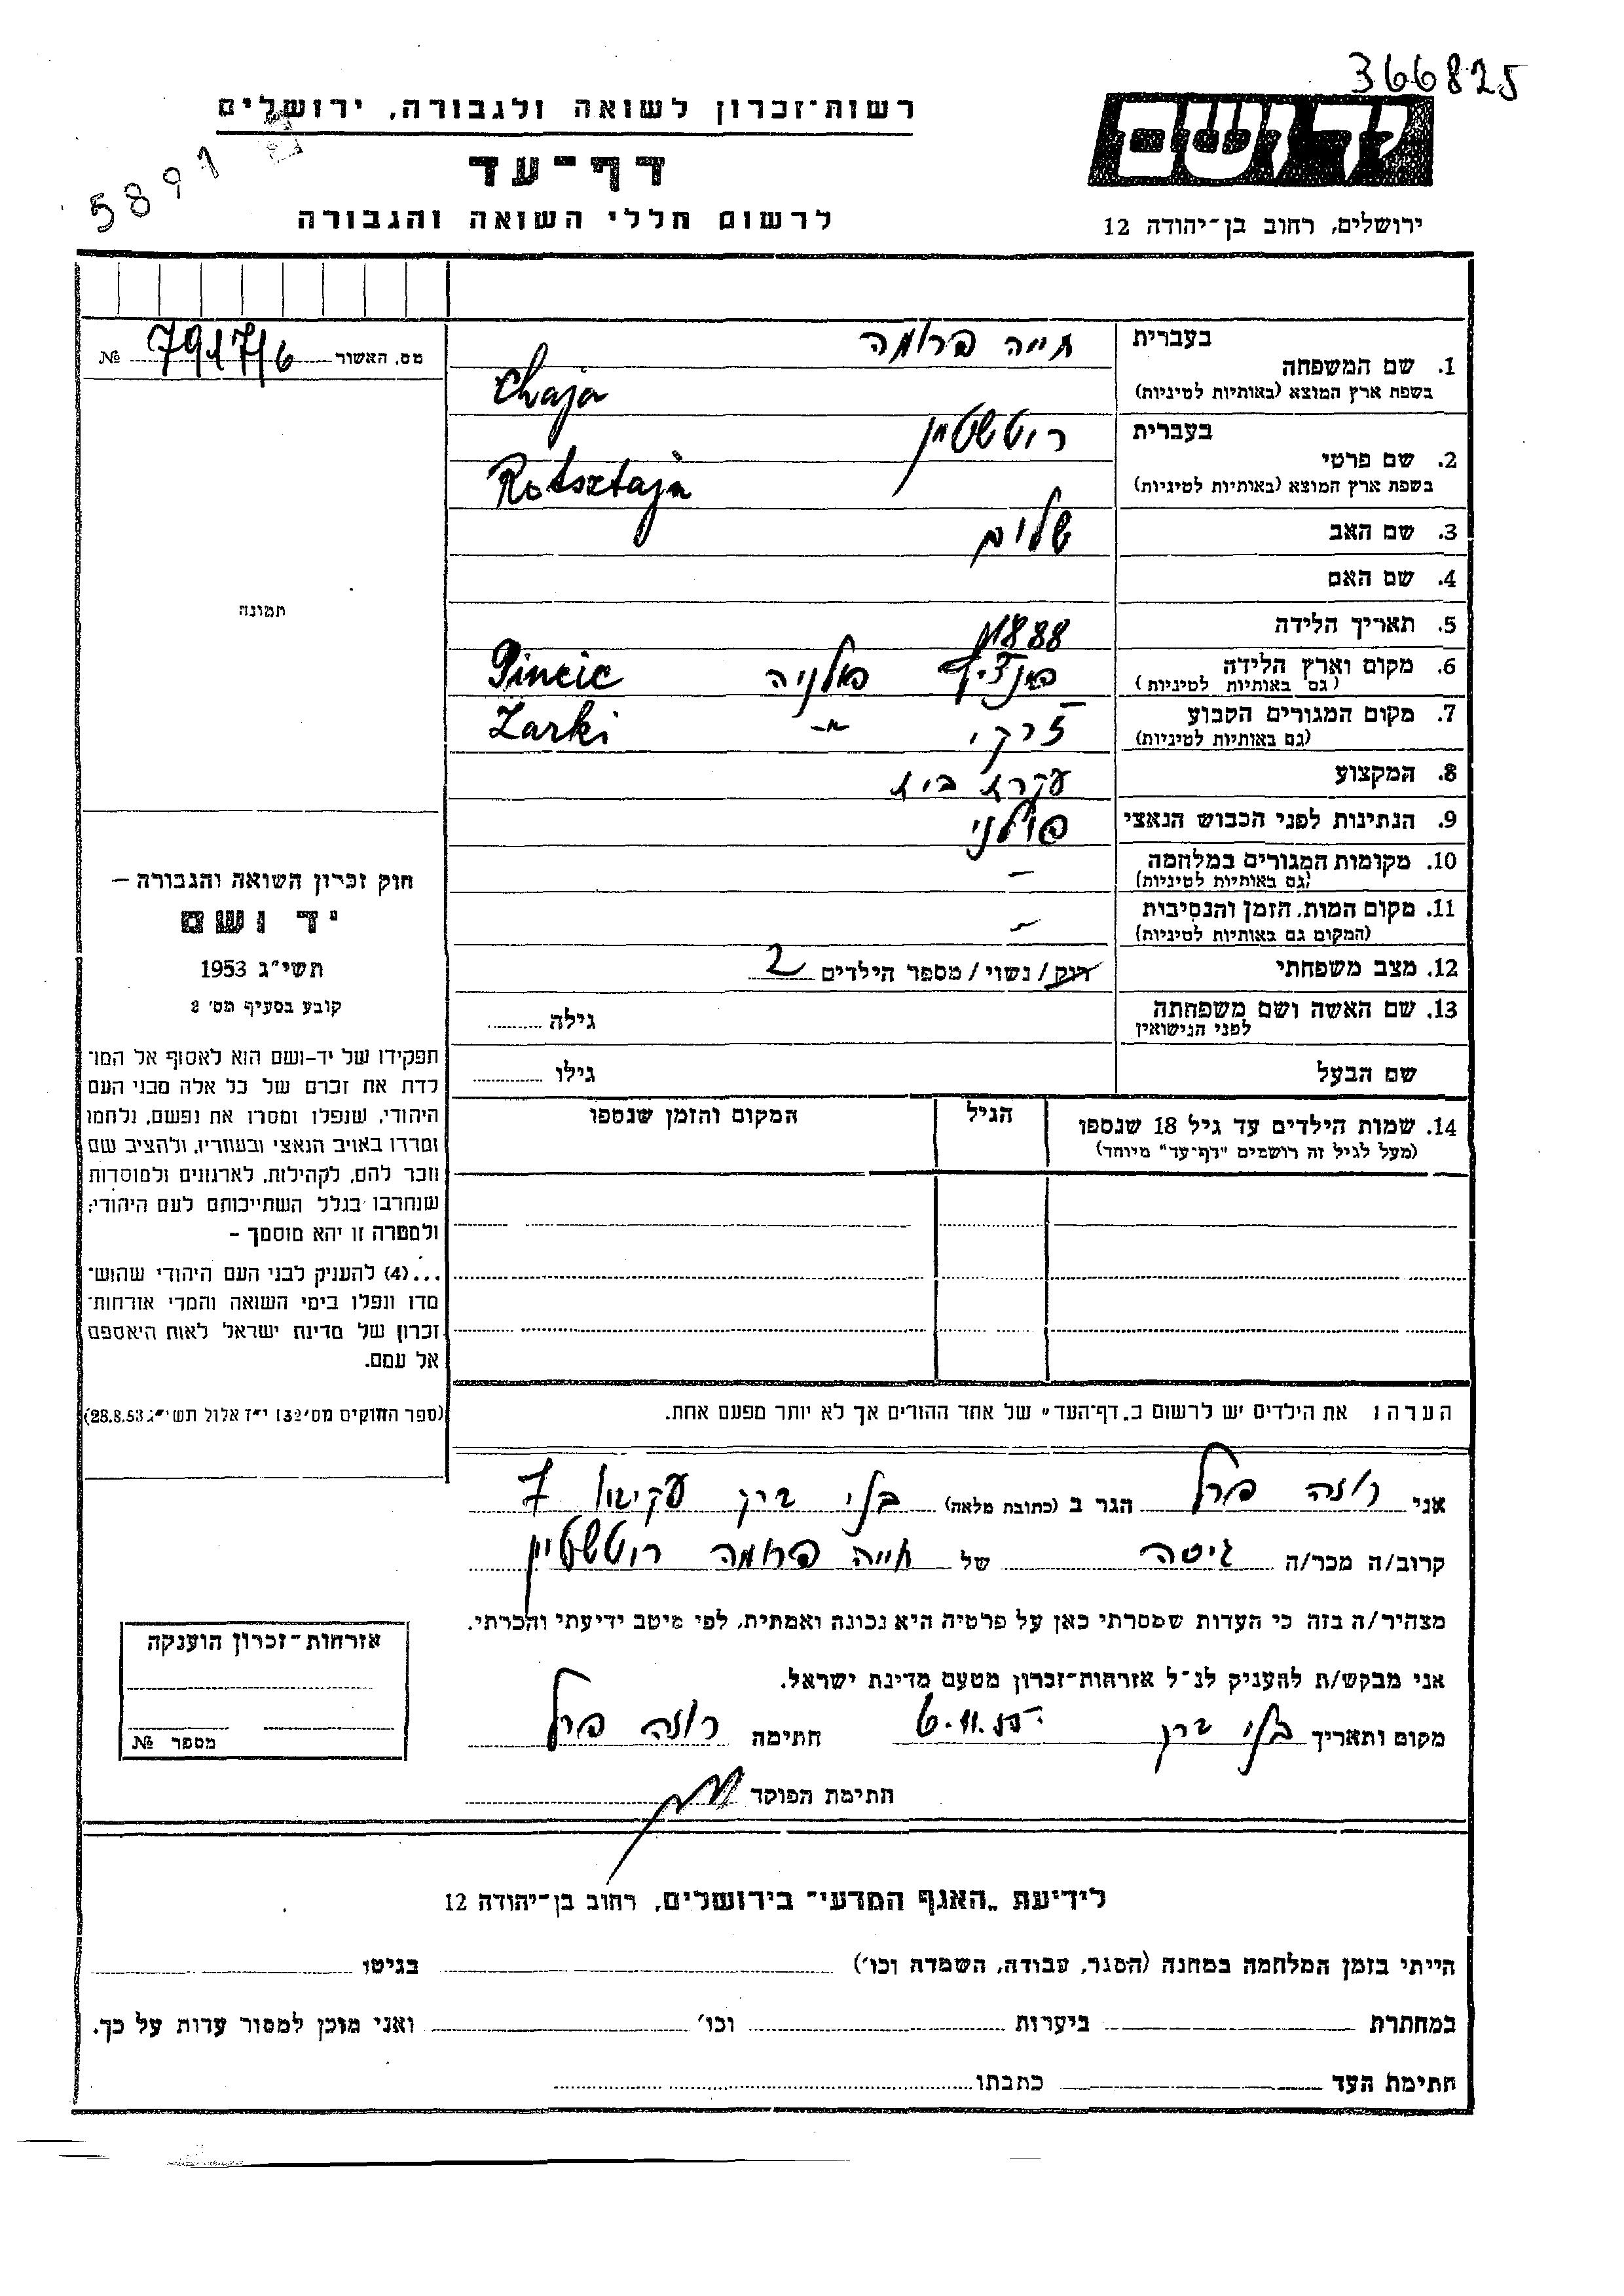 366825
רשות-זכרון לשואה ולגבורה, ירושלים
יד ושם
5891
דף-עד
לרשום חללי השואה והגבורה
ירושלים, רחוב בן-יהודה 12
מס. האשור 7917/6 №
בעברית חייה פרומה
1. שם המשפחה
בשפת ארץ המוצא (באותיות לטיניות) Chaja
בעברית רוטשטיין
2. שם פרטי
בשפת ארץ המוצא (באותיות לטיניות) Rotsztajn
3. שם האב שלום
4. שם האם
5. תאריך הלידה 1888
6. מקום וארץ הלידה פולניה
(גם באותיות לטיניות)
7. מקום המגורים הקבוע זרקי -"- Zarki
(גם באותיות לטיניות)
8. המקצוע עקרת בית
9. הנתינות לפני הכבוש הנאצי פולני
10. מקומות המגורים במלחמה –
(גם באותיות לטיניות)
11. מקום המות, הזמן והנסיבות –
(המקום גם באותיות לטיניות)
12. מצב משפחתי רווק/נשוי/מספר הילדים 2
13. שם האשה ושם משפחתה גילה
לפני הנישואין
שם הבעל גילו
14. שמות הילדים עד גיל 18 שנספו הגיל המקום והזמן שנספו
(מעל לגיל זה רושמים "דף-עד" מיוחד)
תמונה
חוק זכרון השואה והגבורה –
יד ושם
תשי"ג 1953
קובע בסעיף מס' 2
תפקידו של יד-ושם הוא לאסוף אל המו-
לדת את זכרם של כל אלה מבני העם
היהודי, שנפלו ומסרו את נפשם, נלחמו
ומרדו באויב הנאצי ובעוזריו, ולהציב שם
וזכר להם, לקהילות, לארגונים ולמוסדות
שנחרבו בגלל השתייכותם לעם היהודי;
ולמטרה זו יהא מוסמך –
...(4) להעניק לבני העם היהודי שהוש-
מדו ונפלו בימי השואה והמרי אזרחות-
זכרון של מדינת ישראל לאות היאספם
אל עמם.
(ספר החוקים מס' 132 י"ז אלול תשי"ג 28.8.53)
הערה: את הילדים יש לרשום ב"דף-העד" של אחד ההורים אך לא יותר מפעם אחת.
אני רוזה פרל הגר ב (כתובת מלאה) בני ברק עקיבא 7
קרוב/ה מכר/ה גיסה של חייה פרומה רוטשטיין
מצהיר/ה בזה כי העדות שמסרתי כאן על פרטיה היא נכונה ואמתית, לפי מיטב ידיעתי והכרתי.
אני מבקש/ת להעניק לנ"ל אזרחות-זכרון מטעם מדינת ישראל.
מקום ותאריך בני ברק 6.11.55 חתימה רוזה פרל
חתימת הפוקד
אזרחות-זכרון הוענקה
מספר №
לידיעת "האגף המדעי" בירושלים, רחוב בן-יהודה 12
הייתי בזמן המלחמה במחנה (הסגר, עבודה, השמדה וכו') בגיטו
במחתרת ביערות וכו' ואני מוכן למסור עדות על כך.
חתימת העד כתבתו